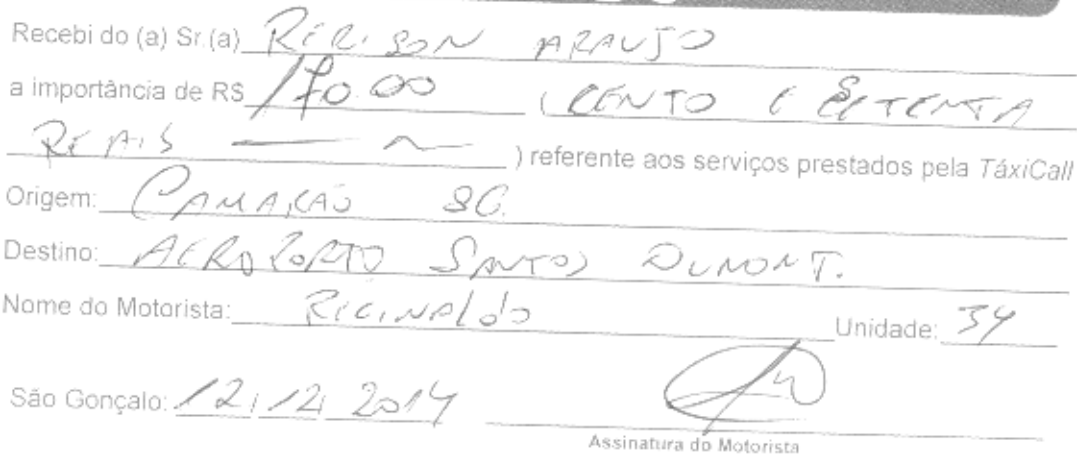 Recebi do (a) Sr.(a) RERISON ARAUJO
a importância de R$ 170.00 (CENTO E SETENTA
REAIS — ~ ) referente aos serviços prestados pela TáxiCall
Origem: CAMARÃO SG.
Destino: AEROPORTO SANTOS DUMONT.
Nome do Motorista: REGINALDO Unidade: 34
São Gonçalo: 12, 12, 2014
Assinatura do Motorista